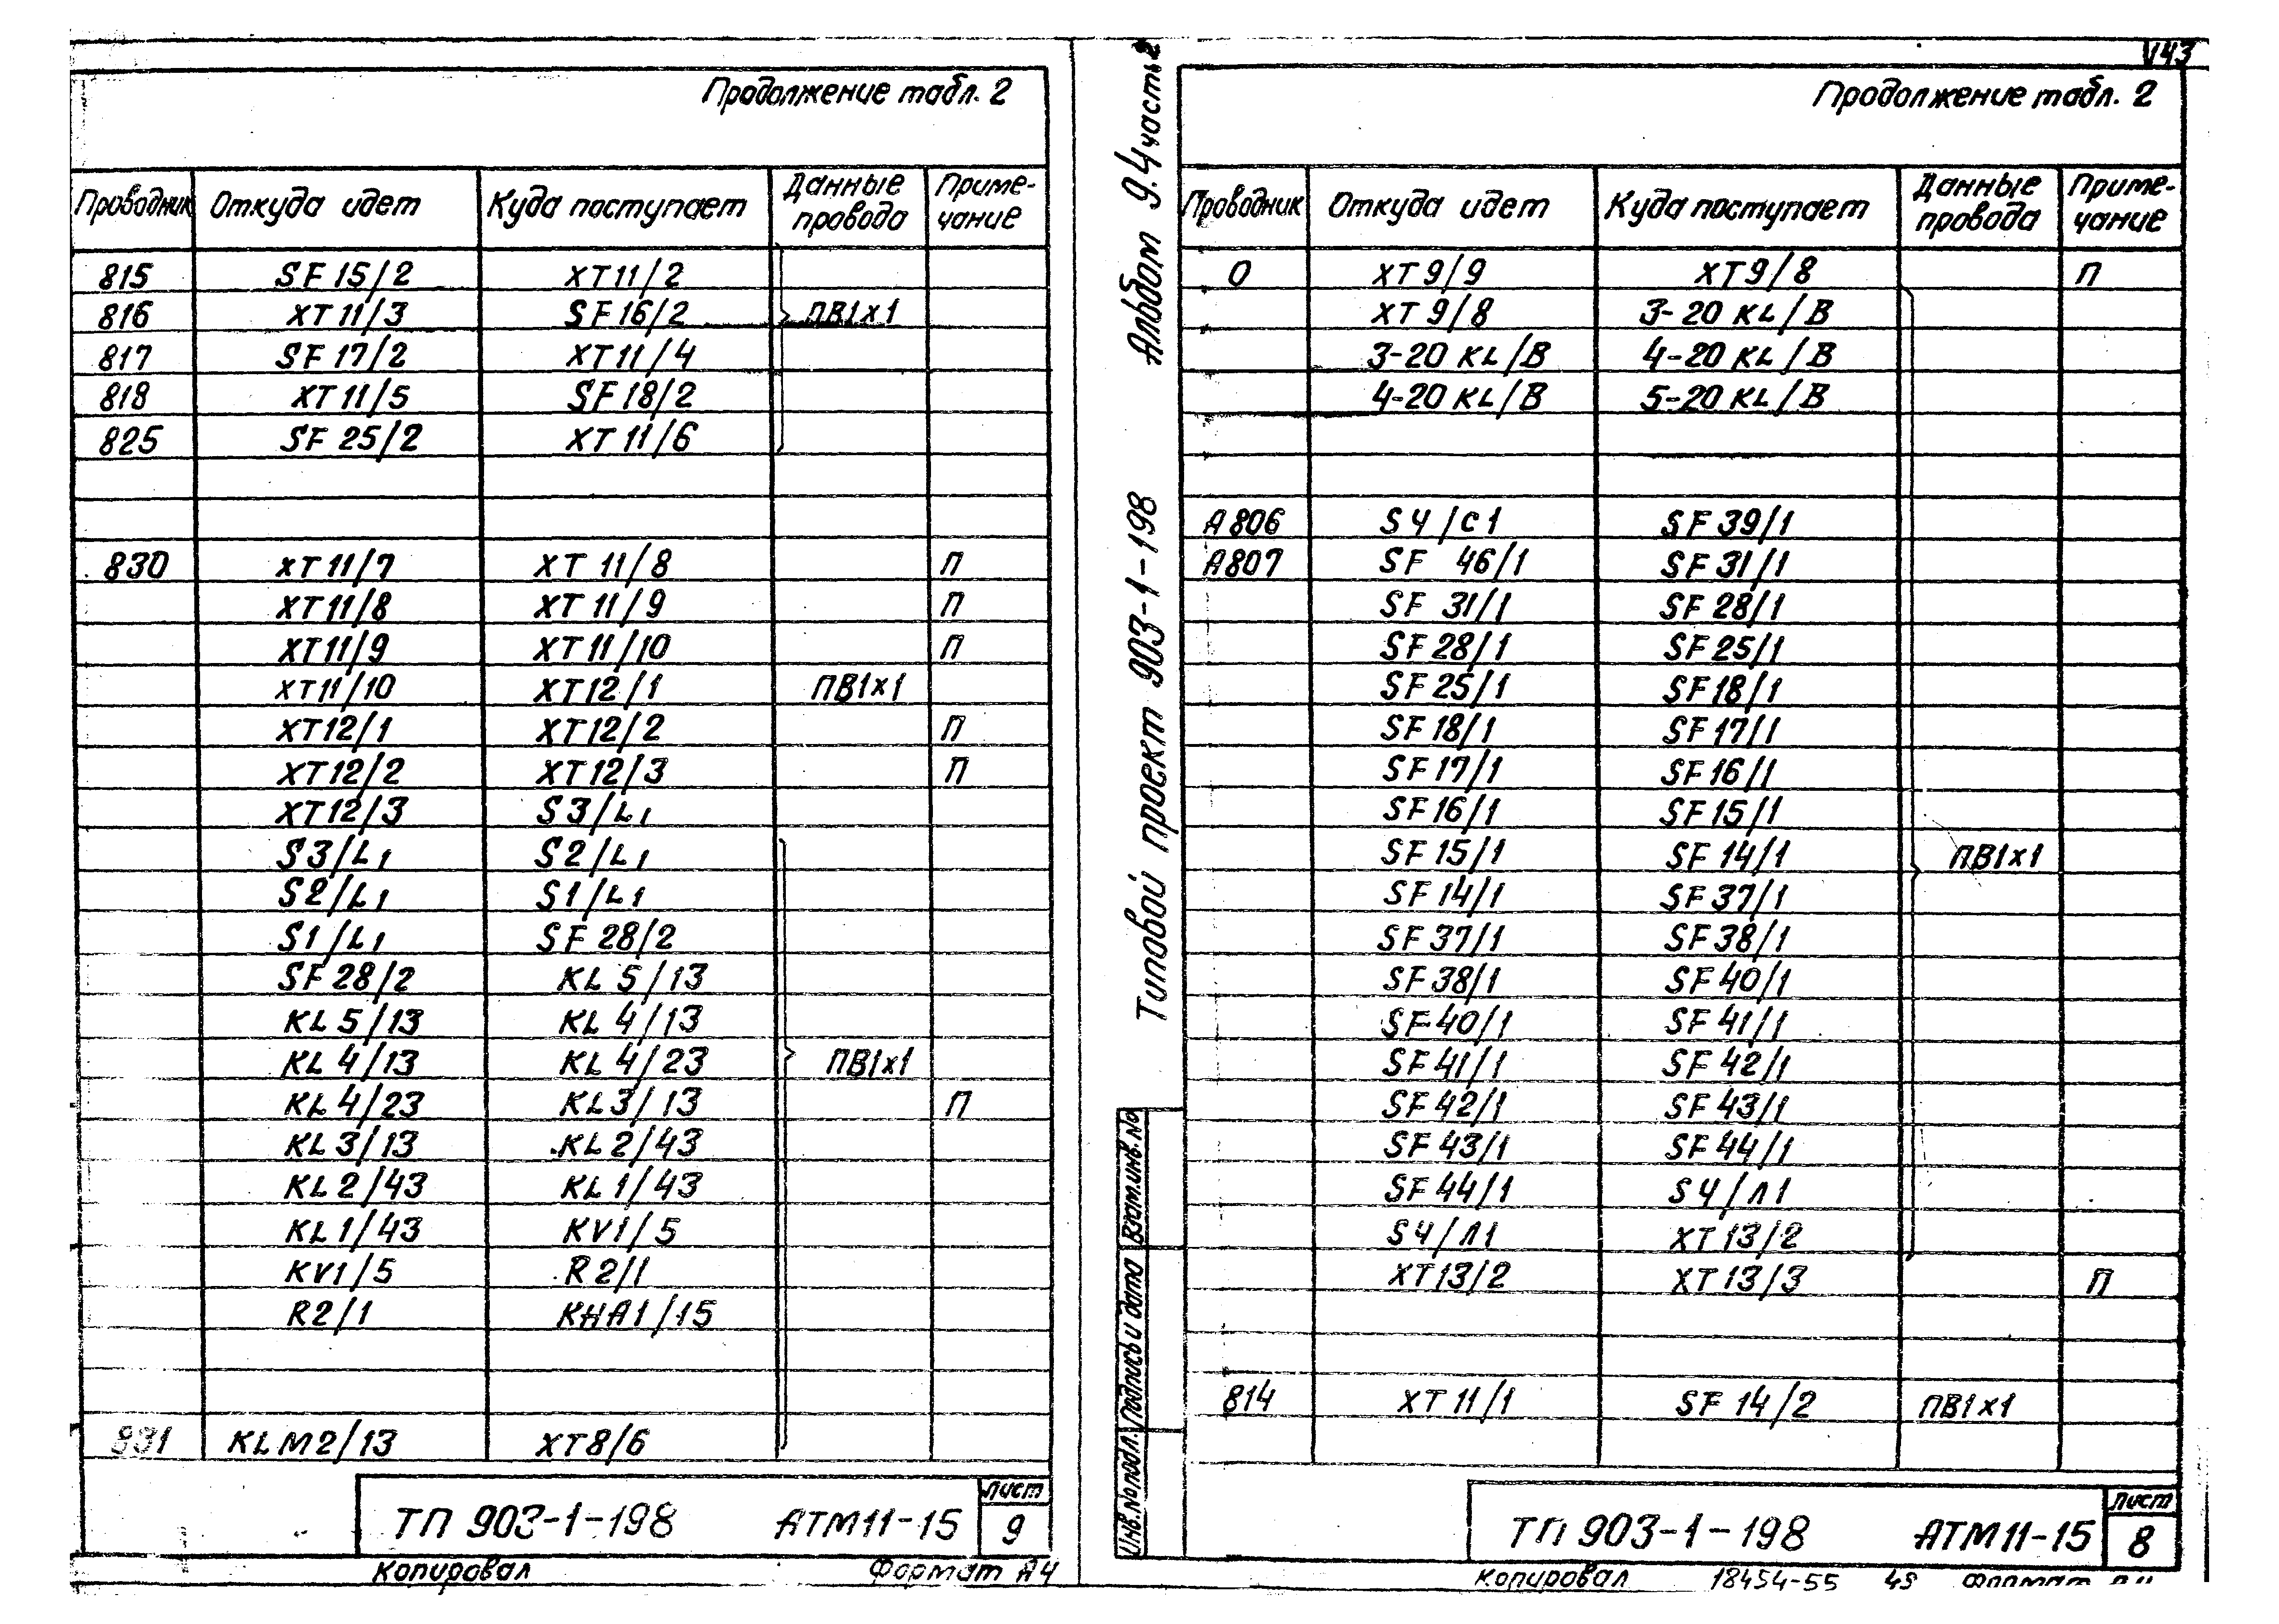 Продолжение табл. 2
Проводник Откуда идет Куда поступает Данные провода Приме-чание
815 SF 15/2 XT11/2
816 XT 11/3 SF 16/2 ПВ1х1
817 SF 17/2 XT11/4
818 XT 11/5 SF 18/2
825 SF 25/2 XT 11/6
830 XT 11/7 XT 11/8 П
XT 11/8 XT 11/9 П
XT 11/9 XT 11/10 П
XT11/10 XT12/1 ПВ1х1
XT12/1 XT12/2 П
XT12/2 XT12/3 П
XT12/3 S3/L1
S3/L1 S2/L1
S2/L1 S1/L1
S1/L1 SF 28/2
SF 28/2 KL 5/13
KL 5/13 KL 4/13
KL 4/13 KL 4/23 ПВ1х1
KL 4/23 KL3/13 П
KL 3/13 KL 2/43
KL 2/43 KL 1/43
KL 1/43 KV1/5
KV1/5 R2/1
R2/1 KHA1/15
831 KLM2/13 XT8/6
ТП 903-1-198 АТМ11-15 Лист 9
Копировал Формат А4
Альбом 9.4 часть 2
Типовой проект 903-1-198
Инв.№ подл. Подпись и дата Взам.инв.№
143
Продолжение табл. 2
Проводник Откуда идет Куда поступает Данные провода Приме-чание
0 XT 9/9 XT9/8 П
XT 9/8 3-20 KL/B
3-20 KL/B 4-20 KL/B
4-20 KL/B 5-20 KL/B
A806 S4/C1 SF 39/1
A807 SF 46/1 SF 31/1
SF 31/1 SF 28/1
SF 28/1 SF 25/1
SF 25/1 SF 18/1
SF 18/1 SF 17/1
SF 17/1 SF 16/1
SF 16/1 SF 15/1
SF 15/1 SF 14/1 ПВ1х1
SF 14/1 SF 37/1
SF 37/1 SF 38/1
SF 38/1 SF 40/1
SF 40/1 SF 41/1
SF 41/1 SF 42/1
SF 42/1 SF 43/1
SF 43/1 SF 44/1
SF 44/1 S4/Л1
S4/Л1 XT 13/2
XT13/2 XT 13/3 П
814 XT 11/1 SF 14/2 ПВ1х1
ТП 903-1-198 АТМ11-15 Лист 8
Копировал 18454-55 Формат